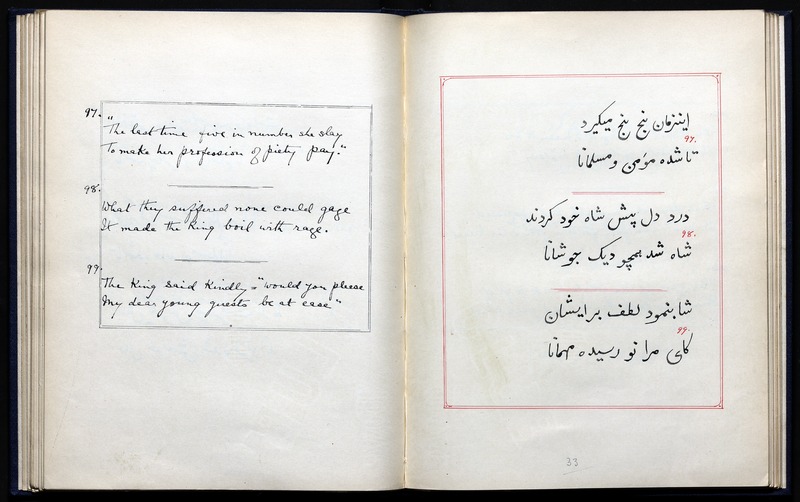 97.
"The last time five in number she slay
To make her profession of piety pay."
98.
What they suffered none could gage
It made the King boil with rage.
99.
The King said kindly, "would you please
My dear young guests be at ease"
اینزمان پنج پنج میگیرد
97.
تا شده مؤمن و مسلمانا
درد دل پیش شاه خود کردند
98.
شاه شد همچو دیک جوشانا
شا بنمود لطف برایشان
99.
کای مرا نو رسیده مهمانا
33